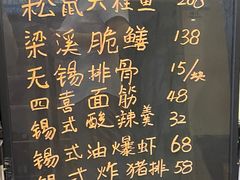 松鼠大桂鱼 208
梁溪脆鳝 138
无锡排骨 15/块
四喜面筋 48
锡式酸辣羹 32
锡式油爆虾 68
锡式炸猪排 58